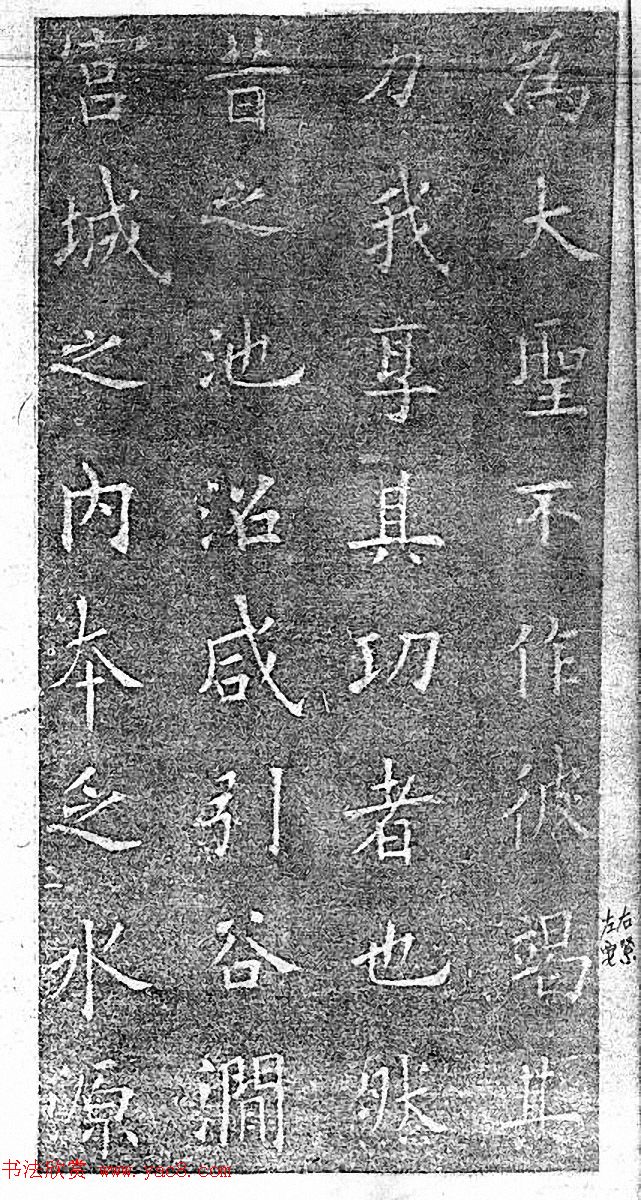 為大聖不作彼竭其
力我享其功者也然
昔之池沼咸引谷澗
宫城之内本乏水源
右緊
左
书法欣赏 www.yac8.com